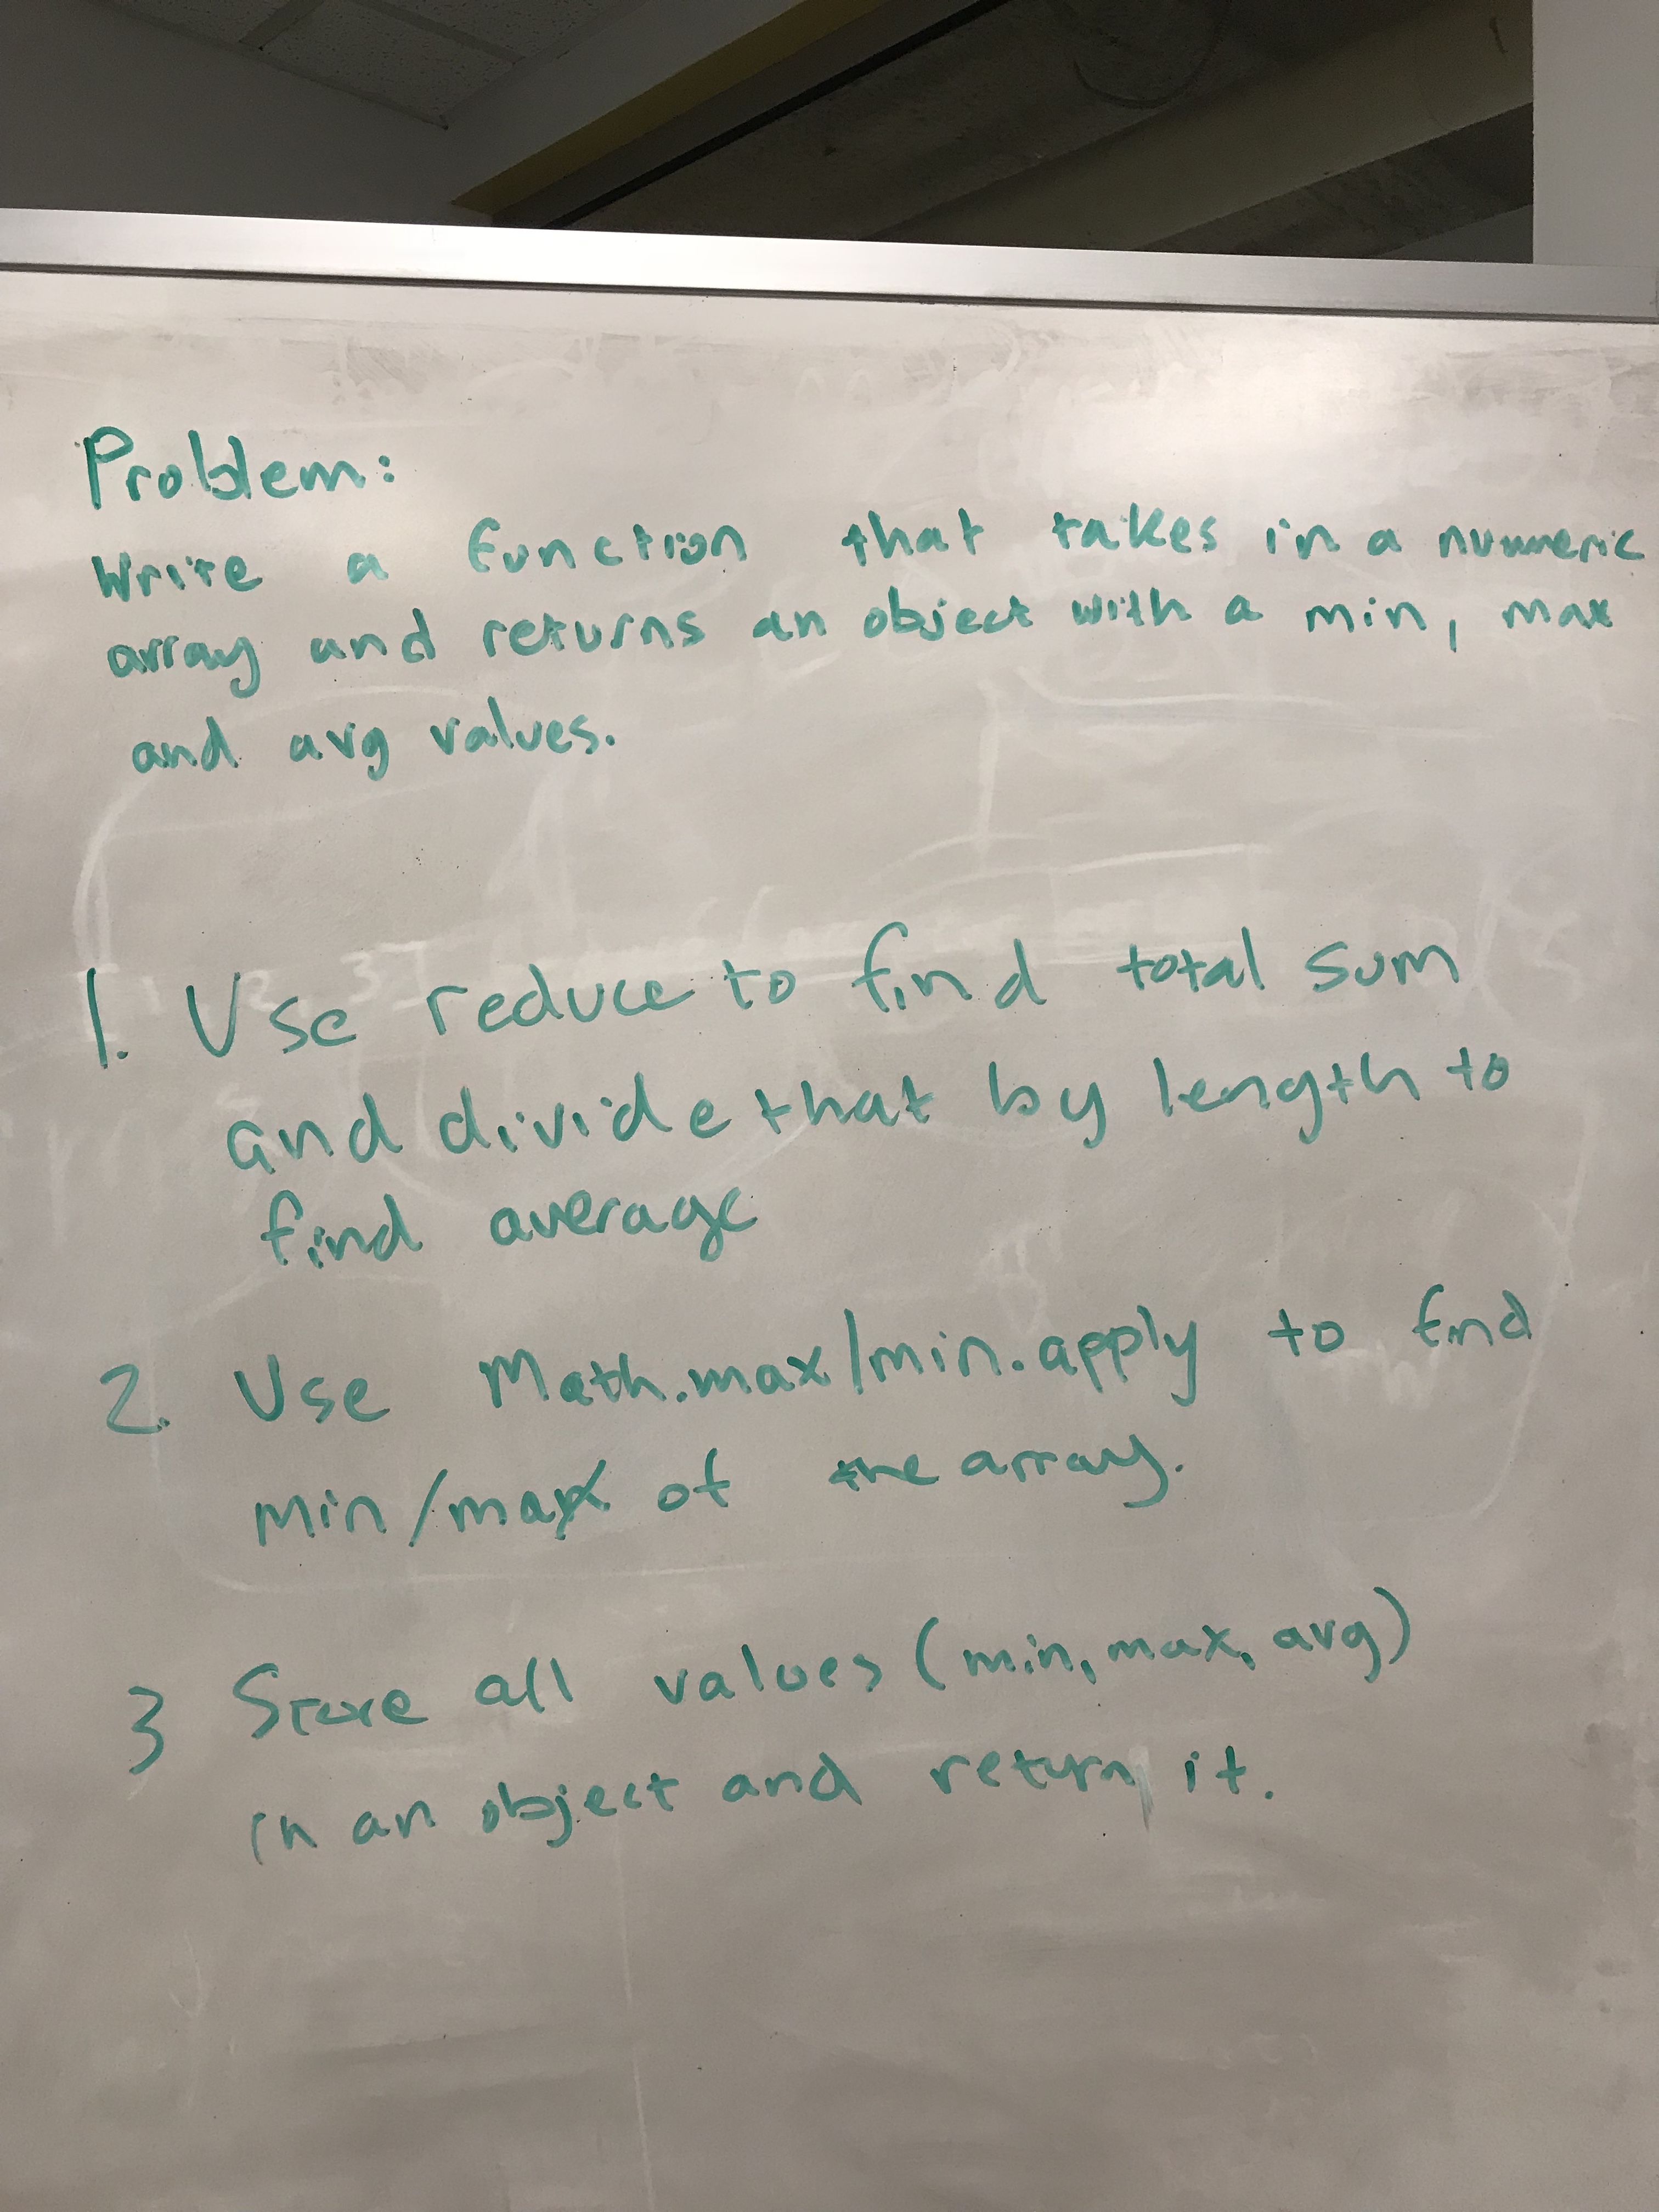 Problem:
Write a function that takes in a numeric
array and returns an object with a min, max
and avg values.
1. Use reduce to find total sum
and divide that by length to
find average
2. Use Math.max/min.apply to find
min/max of the array.
3 Store all values (min, max, avg)
in an object and return it.